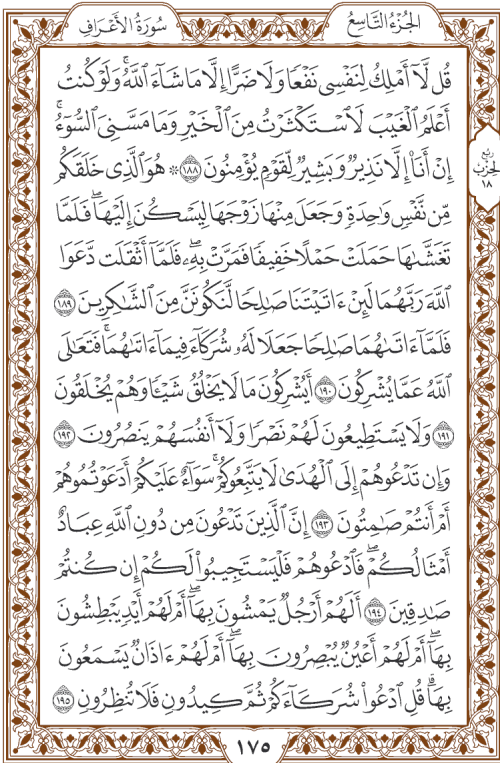 سُورَةُ الأَعْرَافِ
الجُزْءُ التَّاسِعُ
قُل لَّآ أَمْلِكُ لِنَفْسِى نَفْعًا وَلَا ضَرًّا إِلَّا مَا شَآءَ ٱللَّهُۚ وَلَوْ كُنتُ
أَعْلَمُ ٱلْغَيْبَ لَٱسْتَكْثَرْتُ مِنَ ٱلْخَيْرِ وَمَا مَسَّنِىَ ٱلسُّوٓءُۚ
إِنْ أَنَا۠ إِلَّا نَذِيرٌ وَبَشِيرٌ لِّقَوْمٍ يُؤْمِنُونَ ١٨٨ ۞ هُوَ ٱلَّذِى خَلَقَكُم
مِّن نَّفْسٍ وَٰحِدَةٍ وَجَعَلَ مِنْهَا زَوْجَهَا لِيَسْكُنَ إِلَيْهَاۖ فَلَمَّا
تَغَشَّىٰهَا حَمَلَتْ حَمْلًا خَفِيفًا فَمَرَّتْ بِهِۦۖ فَلَمَّآ أَثْقَلَت دَّعَوَا
ٱللَّهَ رَبَّهُمَا لَئِنْ ءَاتَيْتَنَا صَٰلِحًا لَّنَكُونَنَّ مِنَ ٱلشَّٰكِرِينَ ١٨٩
فَلَمَّآ ءَاتَىٰهُمَا صَٰلِحًا جَعَلَا لَهُۥ شُرَكَآءَ فِيمَآ ءَاتَىٰهُمَاۚ فَتَعَٰلَى
ٱللَّهُ عَمَّا يُشْرِكُونَ ١٩٠ أَيُشْرِكُونَ مَا لَا يَخْلُقُ شَيْـًٔا وَهُمْ يُخْلَقُونَ
١٩١ وَلَا يَسْتَطِيعُونَ لَهُمْ نَصْرًا وَلَآ أَنفُسَهُمْ يَنصُرُونَ ١٩٢
وَإِن تَدْعُوهُمْ إِلَى ٱلْهُدَىٰ لَا يَتَّبِعُوكُمْۚ سَوَآءٌ عَلَيْكُمْ أَدَعَوْتُمُوهُمْ
أَمْ أَنتُمْ صَٰمِتُونَ ١٩٣ إِنَّ ٱلَّذِينَ تَدْعُونَ مِن دُونِ ٱللَّهِ عِبَادٌ
أَمْثَالُكُمْۖ فَٱدْعُوهُمْ فَلْيَسْتَجِيبُوا۟ لَكُمْ إِن كُنتُمْ
صَٰدِقِينَ ١٩٤ أَلَهُمْ أَرْجُلٌ يَمْشُونَ بِهَآۖ أَمْ لَهُمْ أَيْدٍ يَبْطِشُونَ
بِهَآۖ أَمْ لَهُمْ أَعْيُنٌ يُبْصِرُونَ بِهَآۖ أَمْ لَهُمْ ءَاذَانٌ يَسْمَعُونَ
بِهَاۗ قُلِ ٱدْعُوا۟ شُرَكَآءَكُمْ ثُمَّ كِيدُونِ فَلَا تُنظِرُونِ ١٩٥
ربع
الحزب
١٨
١٧٥